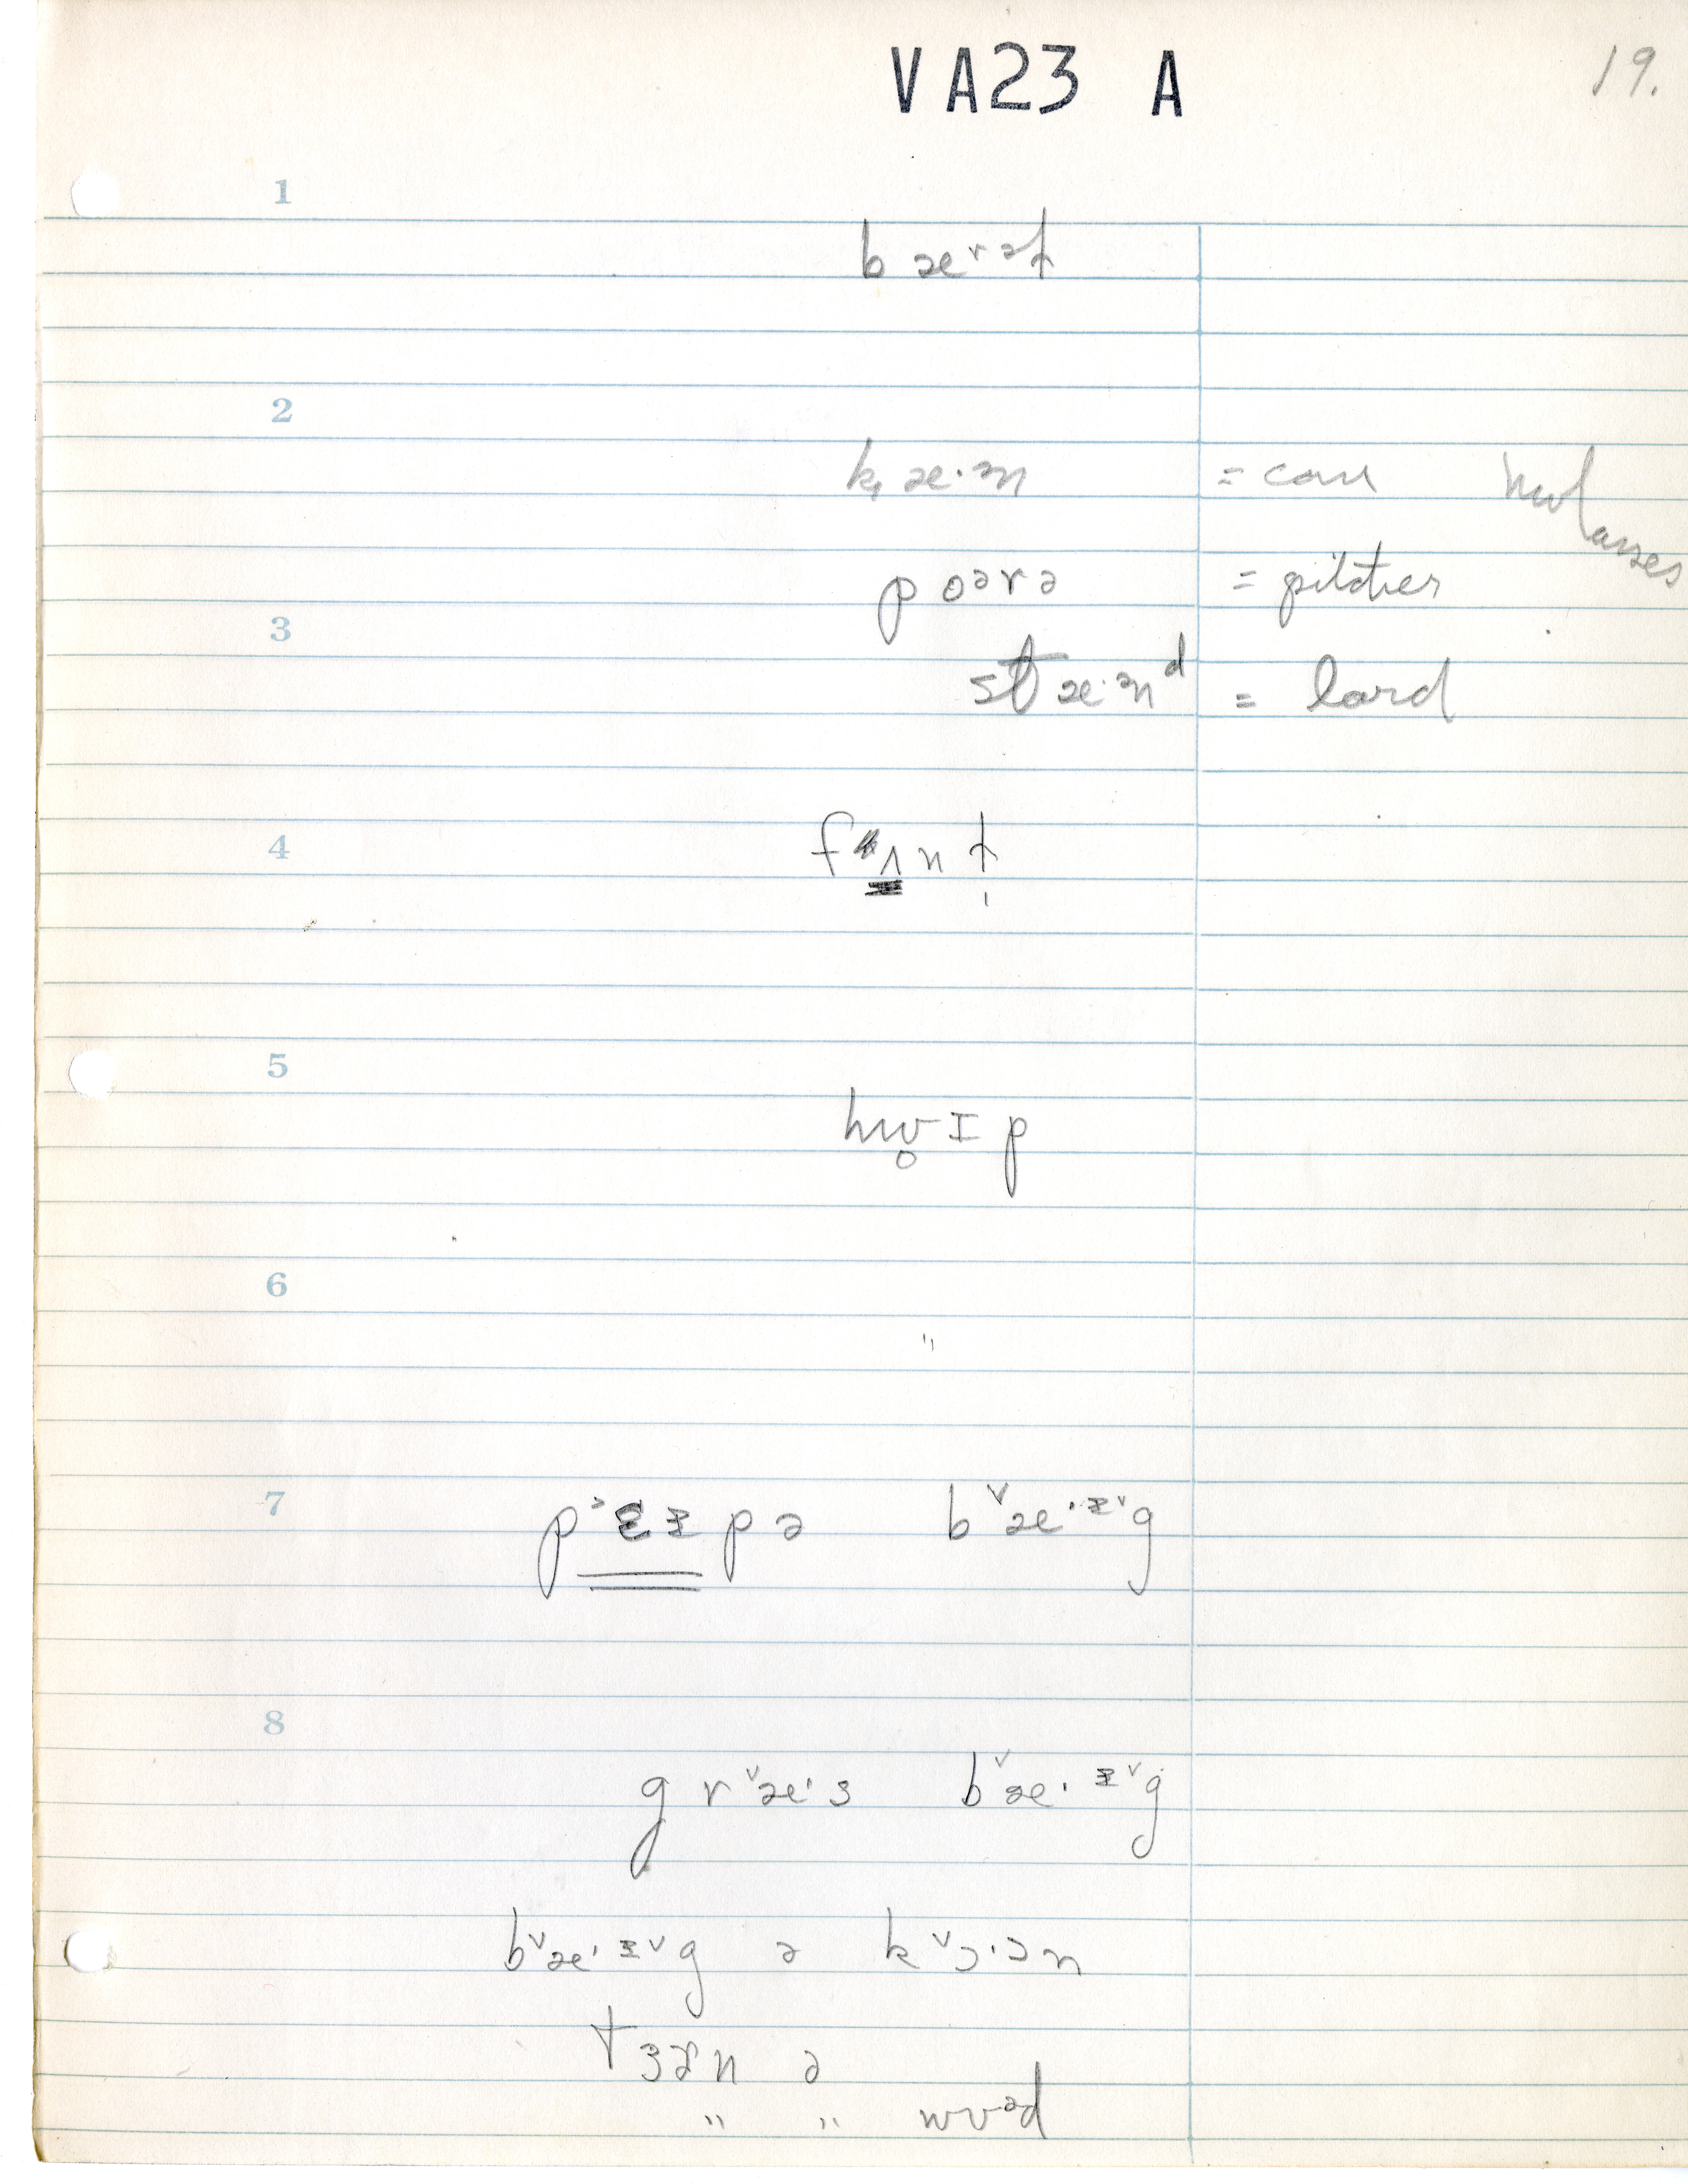 VA23 A
19.
1
bæʳᵊt
2
k̟æ·ᵊn = can molasses
poᵊrə = pitcher
3
stæ·ᵊnᵈ = lard
4
fʌnt
5
hw̥ɪp
6
"
7
pɛɪpə bᵛæ·ᶤᵛg
8
grᵛæ·s bᵛæ·ᶤᵛg
bᵛæ·ᶤᵛg ə kᵛɔ·ɔn
tɜɚn ə
" " wʊᵊd